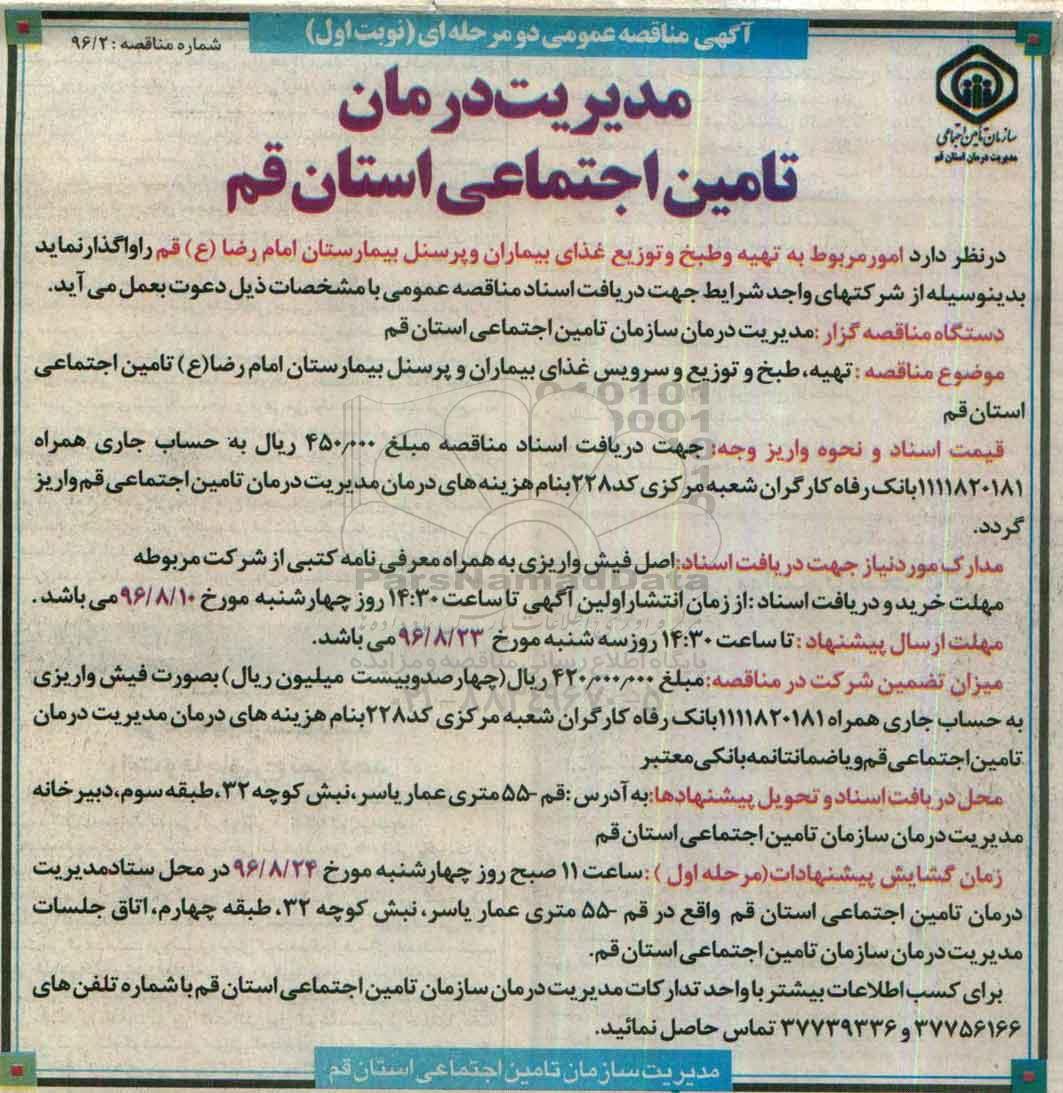 آگهی مناقصه عمومی دو مرحله ای (نوبت اول)
شماره مناقصه : ۹۶/۲
سازمان تامین اجتماعی
مدیریت درمان استان قم
مدیریت درمان
تامین اجتماعی استان قم
درنظر دارد امورمربوط به تهیه وطبخ وتوزیع غذای بیماران وپرسنل بیمارستان امام رضا (ع) قم راواگذارنماید
بدینوسیله از شرکتهای واجد شرایط جهت دریافت اسناد مناقصه عمومی با مشخصات ذیل دعوت بعمل می آید.
دستگاه مناقصه گزار :مدیریت درمان سازمان تامین اجتماعی استان قم
موضوع مناقصه : تهیه، طبخ و توزیع و سرویس غذای بیماران و پرسنل بیمارستان امام رضا(ع) تامین اجتماعی
استان قم
قیمت اسناد و نحوه واریز وجه: جهت دریافت اسناد مناقصه مبلغ ۴۵۰٫۰۰۰ ریال به حساب جاری همراه
۱۱۱۱۸۲۰۱۸۱بانک رفاه کارگران شعبه مرکزی کد۲۲۸بنام هزینه های درمان مدیریت درمان تامین اجتماعی قم واریز
گردد.
مدارک موردنیاز جهت دریافت اسناد:اصل فیش واریزی به همراه معرفی نامه کتبی از شرکت مربوطه
مهلت خرید و دریافت اسناد :از زمان انتشار اولین آگهی تا ساعت ۱۴:۳۰ روز چهارشنبه مورخ ۹۶/۸/۱۰ می باشد .
مهلت ارسال پیشنهاد : تا ساعت ۱۴:۳۰ روزسه شنبه مورخ ۹۶/۸/۲۳ می باشد.
میزان تضمین شرکت در مناقصه:مبلغ ۴۲۰٫۰۰۰٫۰۰۰ ریال(چهارصدوبیست میلیون ریال)بصورت فیش واریزی
به حساب جاری همراه ۱۱۱۱۸۲۰۱۸۱بانک رفاه کارگران شعبه مرکزی کد۲۲۸بنام هزینه های درمان مدیریت درمان
تامین اجتماعی قم ویاضمانتانمه بانکی معتبر
محل دریافت اسناد و تحویل پیشنهادها:به آدرس :قم -۵۵ متری عمار یاسر،نبش کوچه ۳۲،طبقه سوم،دبیرخانه
مدیریت درمان سازمان تامین اجتماعی استان قم
زمان گشایش پیشنهادات(مرحله اول ) :ساعت ۱۱ صبح روز چهارشنبه مورخ ۹۶/۸/۲۴ در محل ستادمدیریت
درمان تامین اجتماعی استان قم واقع در قم -۵۵ متری عمار یاسر، نبش کوچه ۳۲، طبقه چهارم، اتاق جلسات
مدیریت درمان سازمان تامین اجتماعی استان قم.
برای کسب اطلاعات بیشتر با واحد تدارکات مدیریت درمان سازمان تامین اجتماعی استان قم با شماره تلفن های
۳۷۷۵۶۱۶۶ و ۳۷۷۳۹۳۳۶ تماس حاصل نمائید.
مدیریت سازمان تامین اجتماعی استان قم
ParsNamadData
پایگاه اطلاع رسانی مناقصه و مزایده